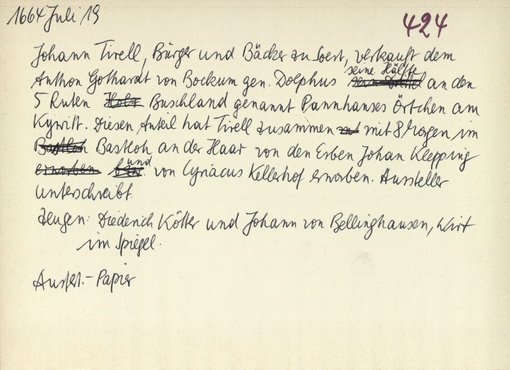 1664 Juli 19
424
Johann Tirell, Bürger und Bäcker zu Soest, verkauft dem
Anthon Gothardt von Bockum gen. Dolphus seine Hälfte an den
5 Ruten Buschland genannt Pannhanses Örtchen am
Diesen Anteil hat Tirell zusammen mit 8 Morgen im
an der Haar von den Erben Johan Klepping
und von Cyriacus Kellerhof erworben. Aussteller
unterschreibt.
Zeugen: Diederich Kötter und Johann von Bellinghausen, Wirt
im Spiegel.
Ausfert.- Papier